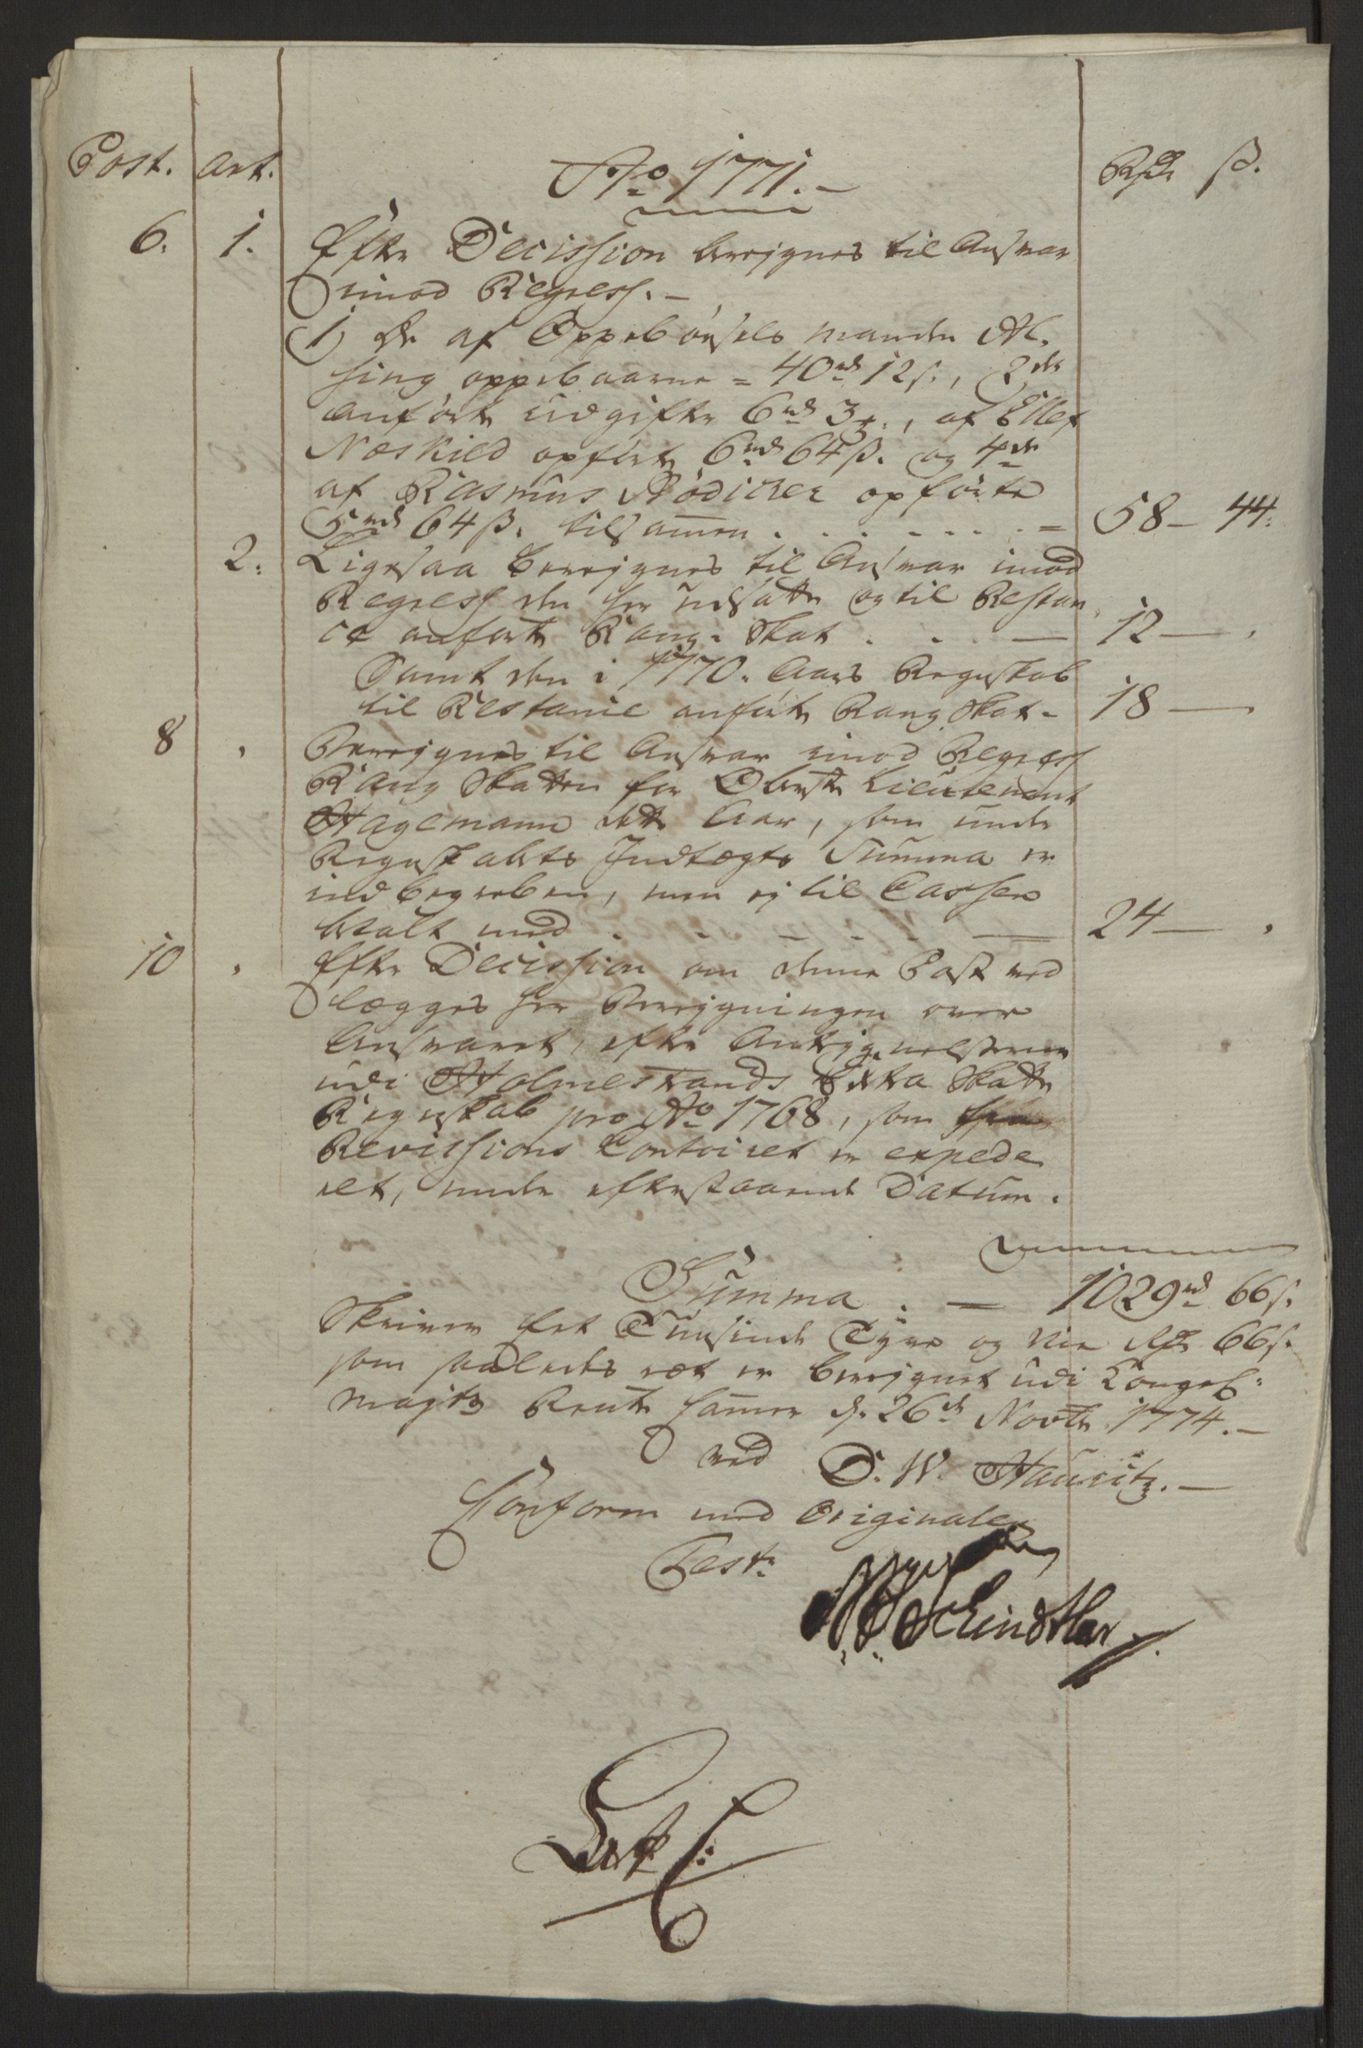 Post. Art. Ao 1771. Rdr ß.
6. 1. Efter Decission beregnes til Ansvar
imod Regress.
1) De af Oppebørsels Manden
oppebaarne 40 rd 12 s., 2de
anførte Udgifter 6 rd 3 , af Ellef
Næskild opført 6 rd 64 ß. og 4de
af Rasmus Rödicker opførte
5 rd 64 ß. tilsammen 58 – 44.
2. Ligesaa beregnes til Ansvar imod
Regress den her udsatte og til Restan
ce anførte Rang-Skat 12 –
Samt den i 1770. Aars Regnskab
til Restance anførte Rang Skat 18 –
8 Beregnes til Ansvar imod Regress
Rang Skatten for Oberst Lieutenant
Hagemann dette Aar, som under
Regnskabets Indtægts Summa er
indbegreben, men ej til Cassen
betalt med 24 –
10 Efter Decission om denne Post ved
lægges her Beregningen over
Ansvaret, efter Antegnelserne
udi Holmestrands Extra Skatte
Regnskab pro Ao 1768, som fra
Revissions Contoiret er expede
ret, under efterstaaende Datum.
Summa. – 1029 rd 66 s.
Skriver Eet Tusinde Tyve og Nie Rdr 66 s.
som saaledes ret er beregnet udi Kongel:
Majts Rente Kammer d. 26de Novbr. 1774.
ved D. W. Hauritz.
Conform med Originalen
Test:
Schindtler